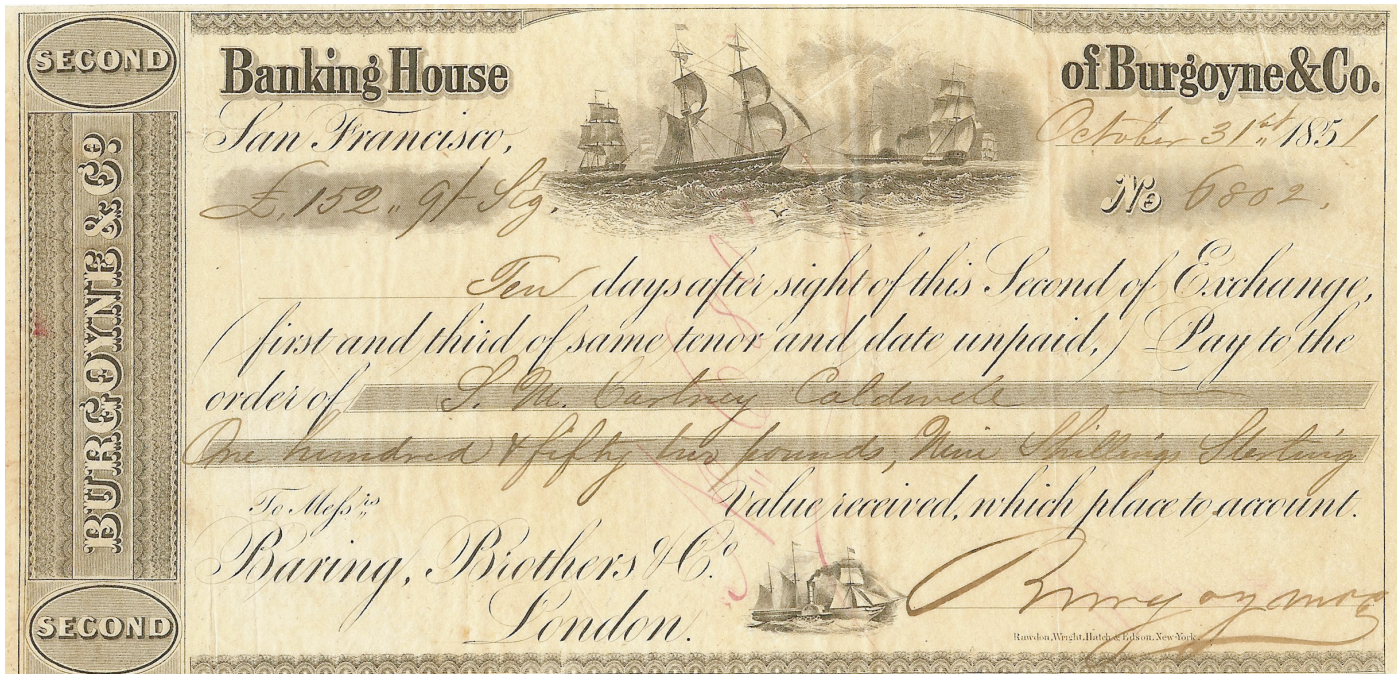 SECOND
Banking House of Burgoyne & Co.
San Francisco, October 31st 1851
£ 152 " 9/- Stg. No 6802.
Ten days after sight of this Second of Exchange,
(first and third of same tenor and date unpaid,) Pay to the
order of S. M. Cartney Caldwell
One hundred & fifty two pounds, Nine Shillings Sterling
Value received, which place to account.
To Messrs
Baring, Brothers & Co.
London.
Burgoyne &Co
Rawdon, Wright, Hatch & Edson, New-York.
BURGOYNE & Co.
SECOND